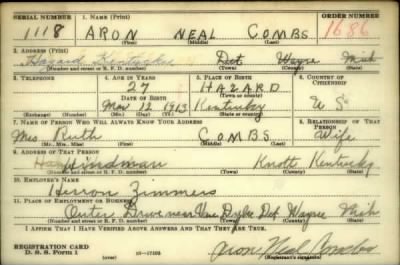 SERIAL NUMBER 1. NAME (Print) ORDER NUMBER
1118 ARON NEAL COMBS 1686
(First) (Middle) (Last)
2. ADDRESS (Print)
Hazard Kentucky Det Wayne Mich
(Number and street or R. F. D. number) (Town) (County) (State)
3. TELEPHONE 4. AGE IN YEARS 5. PLACE OF BIRTH 6. COUNTRY OF CITIZENSHIP
27 HAZARD
DATE OF BIRTH (Town or county)
Mar 12 1913 Kentuckey U S
(Exchange) (Number) (Mo.) (Day) (Yr.) (State or country)
7. NAME OF PERSON WHO WILL ALWAYS KNOW YOUR ADDRESS 8. RELATIONSHIP OF THAT PERSON
Mrs Ruth COMBS Wife
(Mr., Mrs., Miss) (First) (Middle) (Last)
9. ADDRESS OF THAT PERSON
Hindman Knott Kentucky
(Number and street or R. F. D. number) (Town) (County) (State)
10. EMPLOYER'S NAME
Herron Zimmers
11. PLACE OF EMPLOYMENT OR BUSINESS
Outer Drive near Van Dyke Det Wayne Mich
(Number and street or R. F. D. number) (Town) (County) (State)
I AFFIRM THAT I HAVE VERIFIED ABOVE ANSWERS AND THAT THEY ARE TRUE.
REGISTRATION CARD
D. S. S. Form 1 (over) 16—17105 Aron Neal Combs
(Registrant's signature)